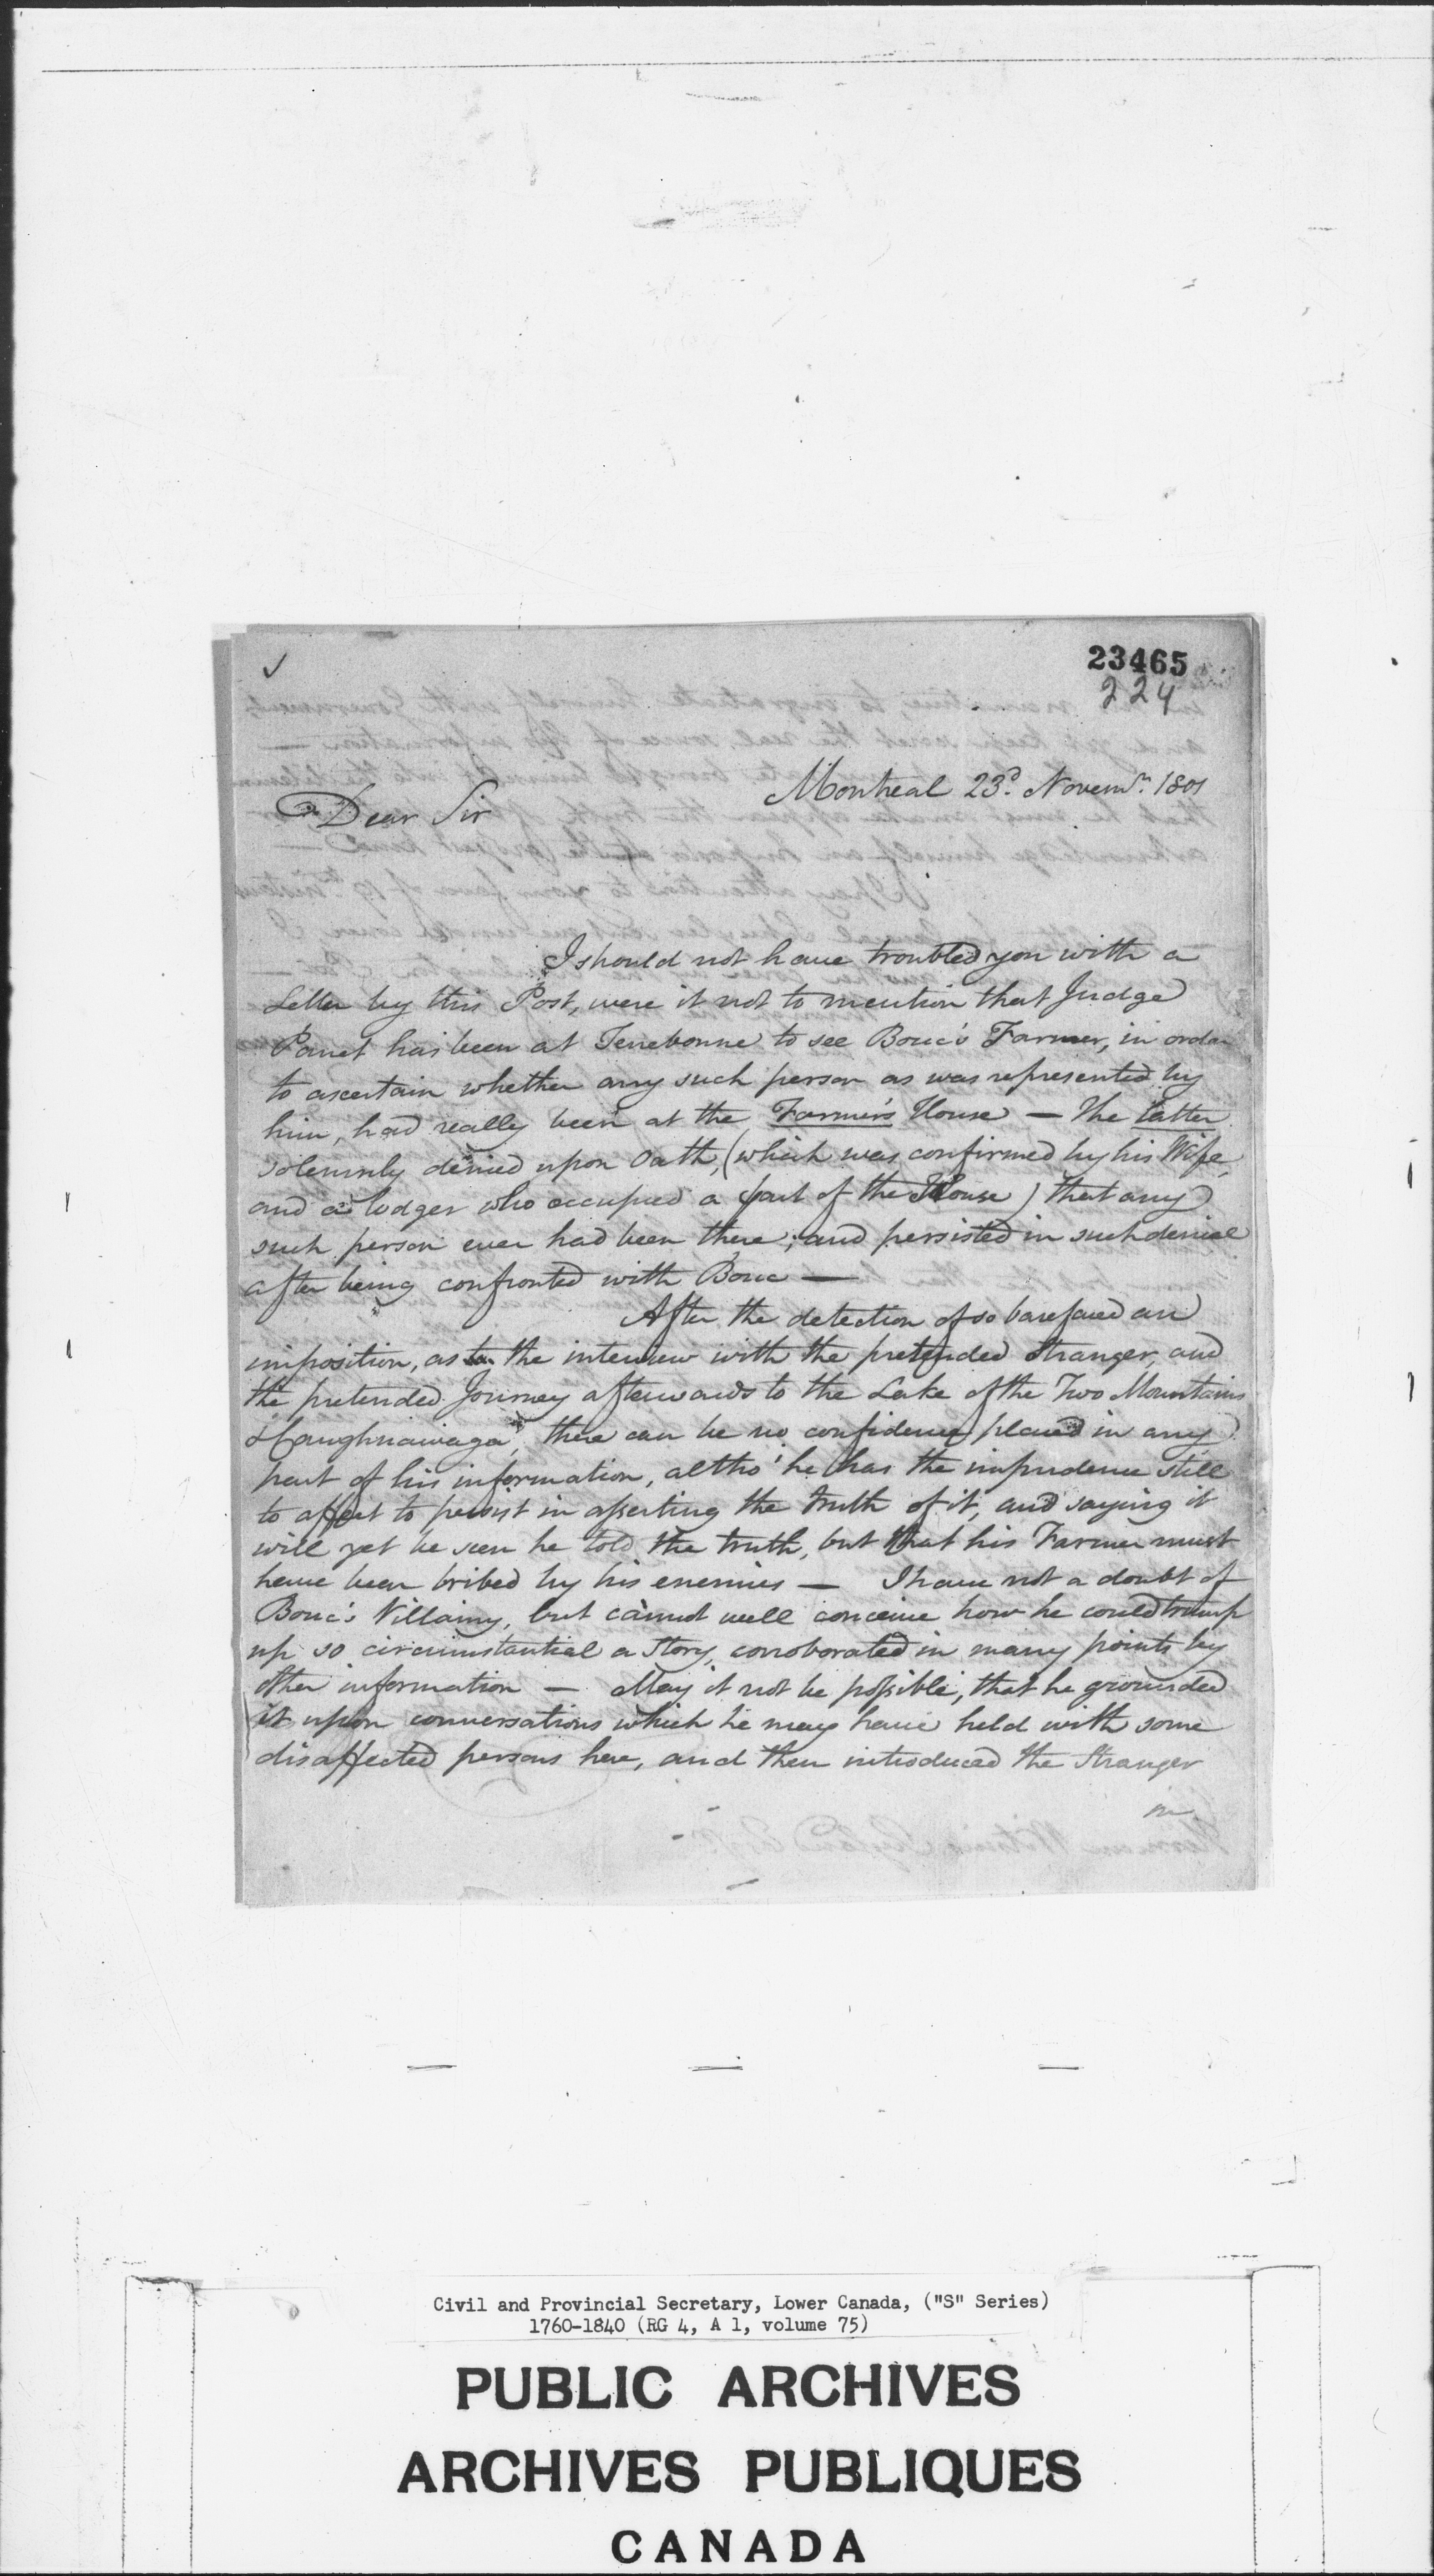 23465
224
Montreal 23d. Novemr. 1801
Dear Sir
I should not have troubled you with a
Letter by this Post, were it not to mention that Judge
Panet has been at Terrebonne to see Bouc's Farmer, in order
to ascertain whether any such person as was represented by
him, had really been at the Farmer's House — The latter
solemnly denied upon Oath, (which was confirmed by his Wife,
and a lodger who occupied a part of the House) that any
such person ever had been there; and persisted in such denial
after being confronted with Bouc —
After the detection of so barefaced an
imposition, as to the interview with the pretended Stranger, and
the pretended Journey afterwards to the Lake of the Two Mountains
& Caughnawaga, there can be no confidence placed in any
part of his information, altho' he has the impudence still
to affect to persist in asserting the truth of it, and saying it
will yet be seen he told the truth, but that his Farmer must
have been bribed by his enemies — I have not a doubt of
Bouc's Villainy, but cannot well conceive how he could trump
up so circumstantial a Story, corroborated in many points by
other information — May it not be possible, that he grounded
it upon conversations which he may have held with some
disaffected persons here, and then introduced the Stranger
in
Civil and Provincial Secretary, Lower Canada, ("S" Series)
1760-1840 (RG 4, A 1, volume 75)
PUBLIC ARCHIVES
ARCHIVES PUBLIQUES
CANADA